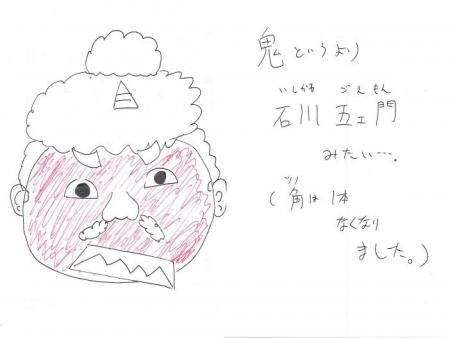 鬼というより
いしかわ ごえもん
石川 五エ門
みたい…。
ツノ
(角は1本
なくなり
ました。)